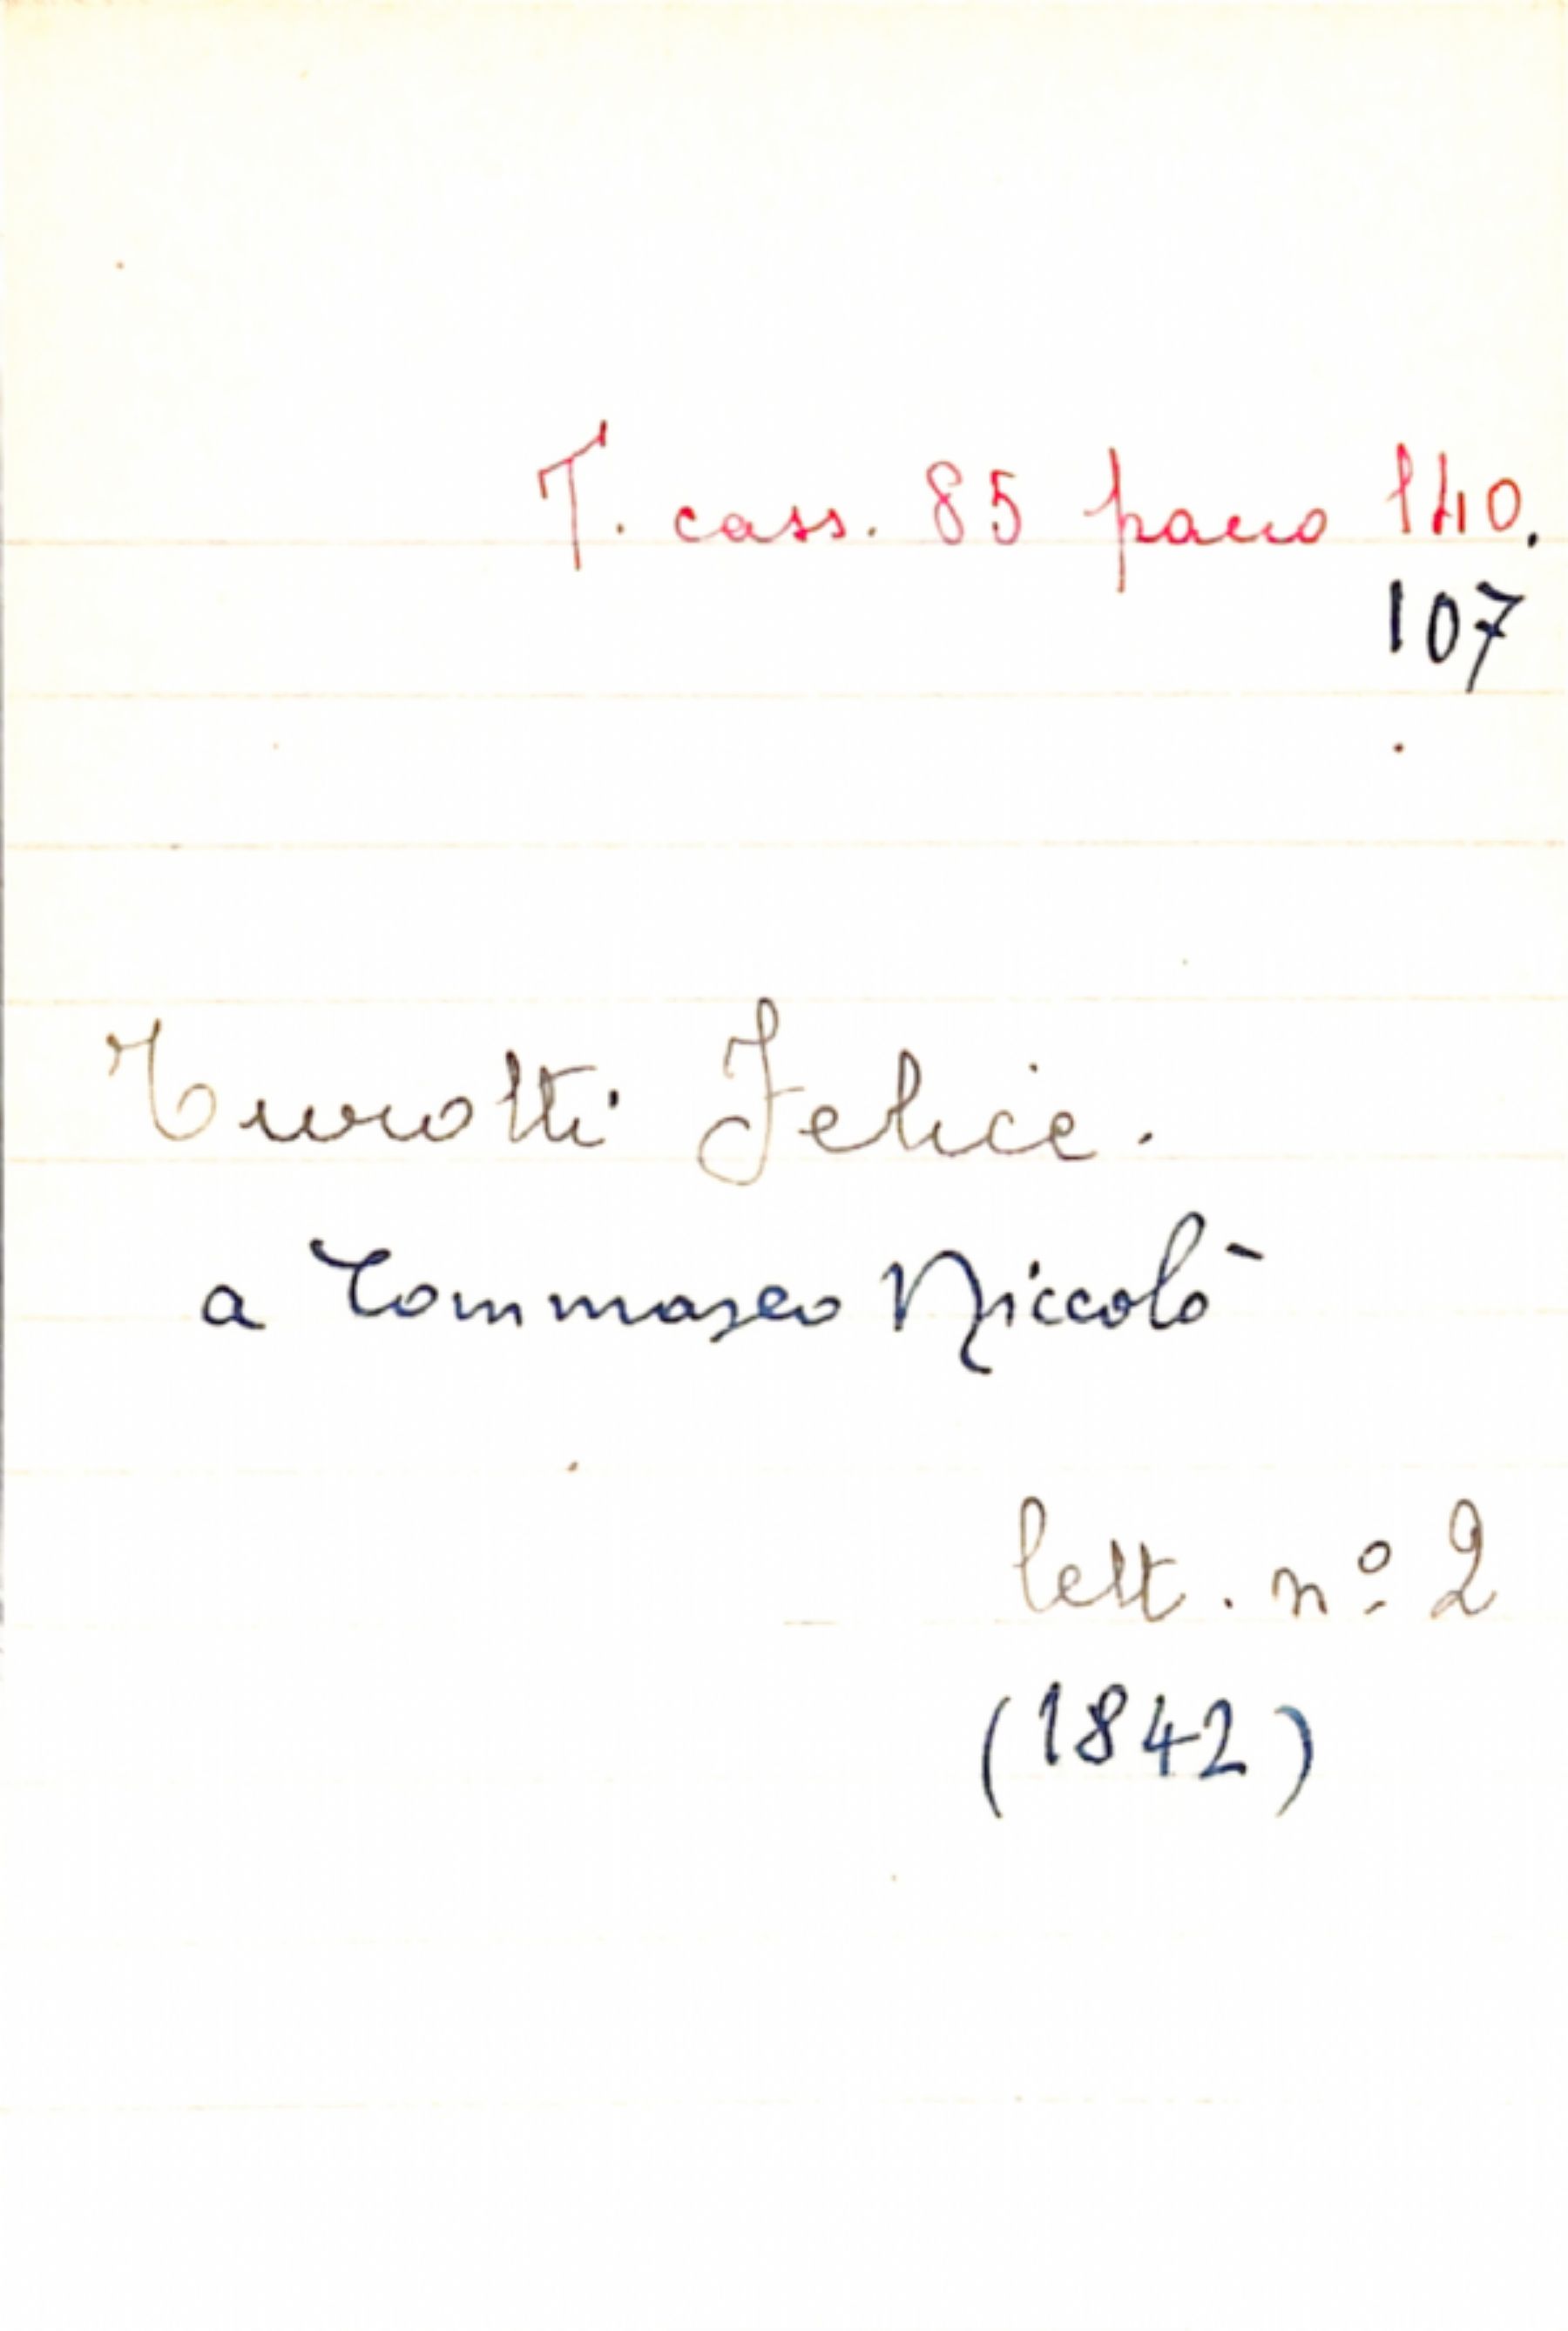 T. cass. 85 pacco 140.
107
Turotti Felice.
a Tommaseo Niccolò
lett. nº 2
(1842)